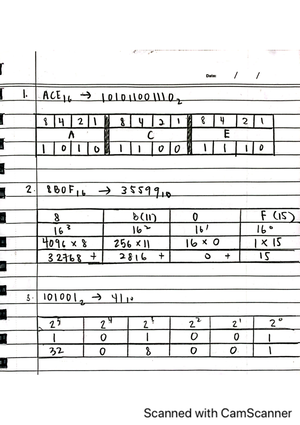 Date: / /
1. ACE16 → 1010110011102
8 4 2 1 8 4 2 1 8 4 2 1
A C E
1 0 1 0 1 1 0 0 1 1 1 0
2. 8B0F16 → 3559910
8 b(11) 0 F (15)
16³ 16² 16¹ 16⁰
4096 × 8 256 × 11 16 × 0 1 × 15
32768 + 2816 + 0 + 15
3. 1010012 → 4110
2⁵ 2⁴ 2³ 2² 2¹ 2⁰
1 0 1 0 0 1
32 0 8 0 0 1
Scanned with CamScanner